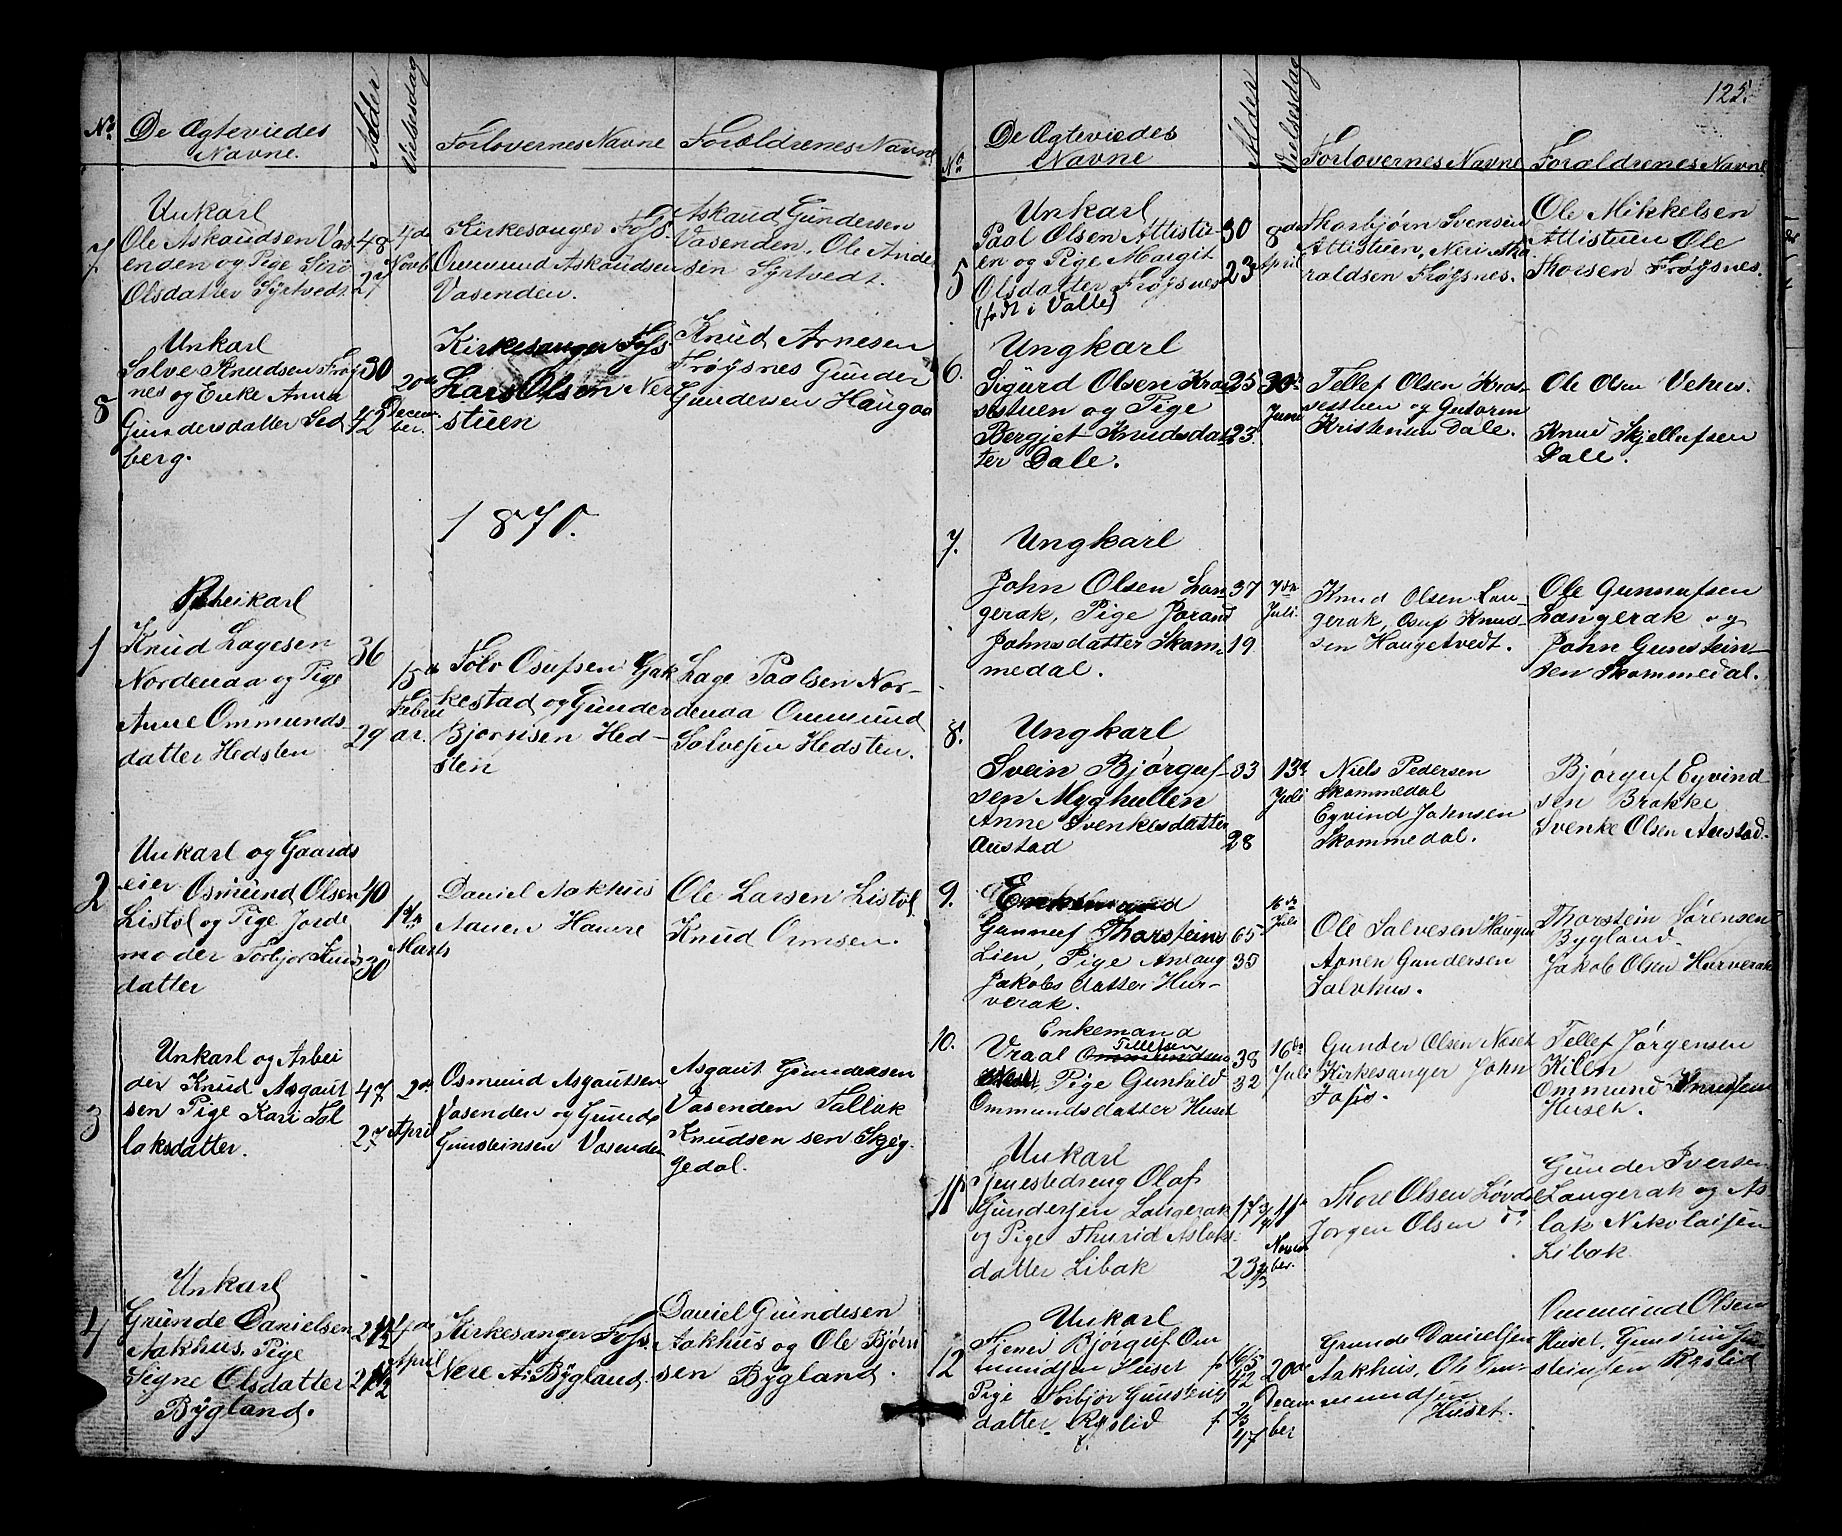 No
De Ægteviedes
Navne.
Alder
Vielsesdag
Forlovernes Navne
Forældrenes Navne
7
Unkarl
Ole Askaudsen Vas
enden og Pige Siri
Olsdatter Syrtvedt
48
27
4de
Novb
Kirkesanger Foss.
Ommund Askaudsen
Vasenden.
Askaud Gundersen
Vasenden, Ole Ande
sen Syrtvedt.
8
Unkarl
Salve Knudsen Frøÿs
nes og Enke Anna
Gundersdatter Sed
berg.
30
42
20de
Decem
ber.
Kirkesanger Foss
Lars Olsen Ner
stuen
Knud Arnesen
Frøÿsnes Gunder
Gundersen Haugaa
1870.
1
Pleikarl
Knud Lagesen
Nordenaa og Pige
Anne Ommunds
datter Hedsten
36
29
15de
Febru
ar.
Solv Osufsen Gjak
kestad og Gunder
Bjornsen Hed-
sten
Lage Paalsen Nor-
denaa Ommund
Salvesen Hedsten.
2
Unkarl og Gaards
eier Osmund Olsen
Listøl og Pige Jorde
moder Torbjor Knuds
datter
40
30
1ste
Marts
Daniel Aakhus
Aanen Hamre
Ole Larsen Listøl
Knud Ormsen.
3
Unkarl og Arbei
der Knud Asgaut
sen Pige Kari Tol
laksdatter.
47
27
2de
April
Osmund Asgautsen
Vasenden og Gunder
Gunsteinsen Vasenden
Asgaut Gundersen
Vasenden Tallak
Knudsen sen Skjeg-
gedal.
4
Unkarl
Grunde Danielsen
Aakhus. Pige
Signe Olsdatter
Bÿgland.
4de
April
Kirkesanger Foss.
Nere A. Bÿgland.
Daniel Grundesen
Aakhus og Ole Bjørn
sen Bÿgland.
125.
No
De Ægteviedes
Navne
Alder
Vielsesdag
Forlovernes Navne
Forældrenes Navne
5
Unkarl
Paal Olsen Attistu-
en og Pige Margit
Olsdatter Frøÿsnes
(født i Valle)
30
23
8de
April
Thorbjørn Svensen
Attistuen, Neri Tha
raldsen Frøÿsnes.
Ole Mikkelsen
Attistuen Ole
Thorsen Frøÿsnes.
6.
Ungkarl
Sigurd Olsen Kros
sestuen og Pige
Bergjet Knudsdat
ter Dale.
25
23
30te
Juni
Tellef Olsen Kros
sestuen og Gutorm
Kristensen Dale.
Ole Olsen Vehus.
Knud Skjellufsen
Dale.
7.
Ungkarl
John Olsen Lan
gerak, Pige Jorand
Johnsdatter Skom-
medal.
37
19
7de
Juli.
Knud Olsen Lan-
gerak, Osuf Knud-
sen Haugetvedt.
Ole Gunnufsen
Langerak og
John Gunstein-
sen Skommedal.
8.
Ungkarl
Svein Bjørguf-
sen Myghullen
Anne Svenkesdatter
Austad
33
28
13de
Juli
Niels Pedersen
Skommedal
Eyvind Johnsen
Skommedal.
Bjørguf Eyvind
sen Brokke
Svenke Olsen Austad.
9.
Enkemand
Gunnuf Thorsteins
Lien, Pige Anlaug
Jakobsdatter Hur-
verak.
65
35
16de
Juli
Ole Salvesen Haugen
Aanen Gundersen
Salvhus.
Thorstein Sørensen
Bygland.
Jakob Olsen Horverak
10.
Enkemand
Tellefsen
Vraal Ommundsen
Neset, Pige Gunhild
Ommundsdatter Huset
38
32
16de
Juli
Gunder Olsen Neset
Kirkesanger John
Foss.
Tellef Jørgensen
Kilen
Ommund Knudsen
Huset.
11
Unkarl
Tjenestedreng Olaf
Gundersen Langerak
og Pige Thurid Aslaks
datter Libak
17 3/4
23 2/3
11te
Novem
ber.
Thore Olsen Løvdal
Jorgen Olsen do.
Gunder Iversen
Langerak og As
lak Nikolaisen
Libak
12
Unkarl
Tjener Bjørguf Om
mundsen Huset
Pige Torbjor Gunsteins
datter Rysliđ
f
f
20de
Decem
ber
Grunde Danielsen
Aakhus, Ole Om-
mundsen
Huset.
Ommund Olsen
Huset. Gunstein Gun
steinsen Rysliđ